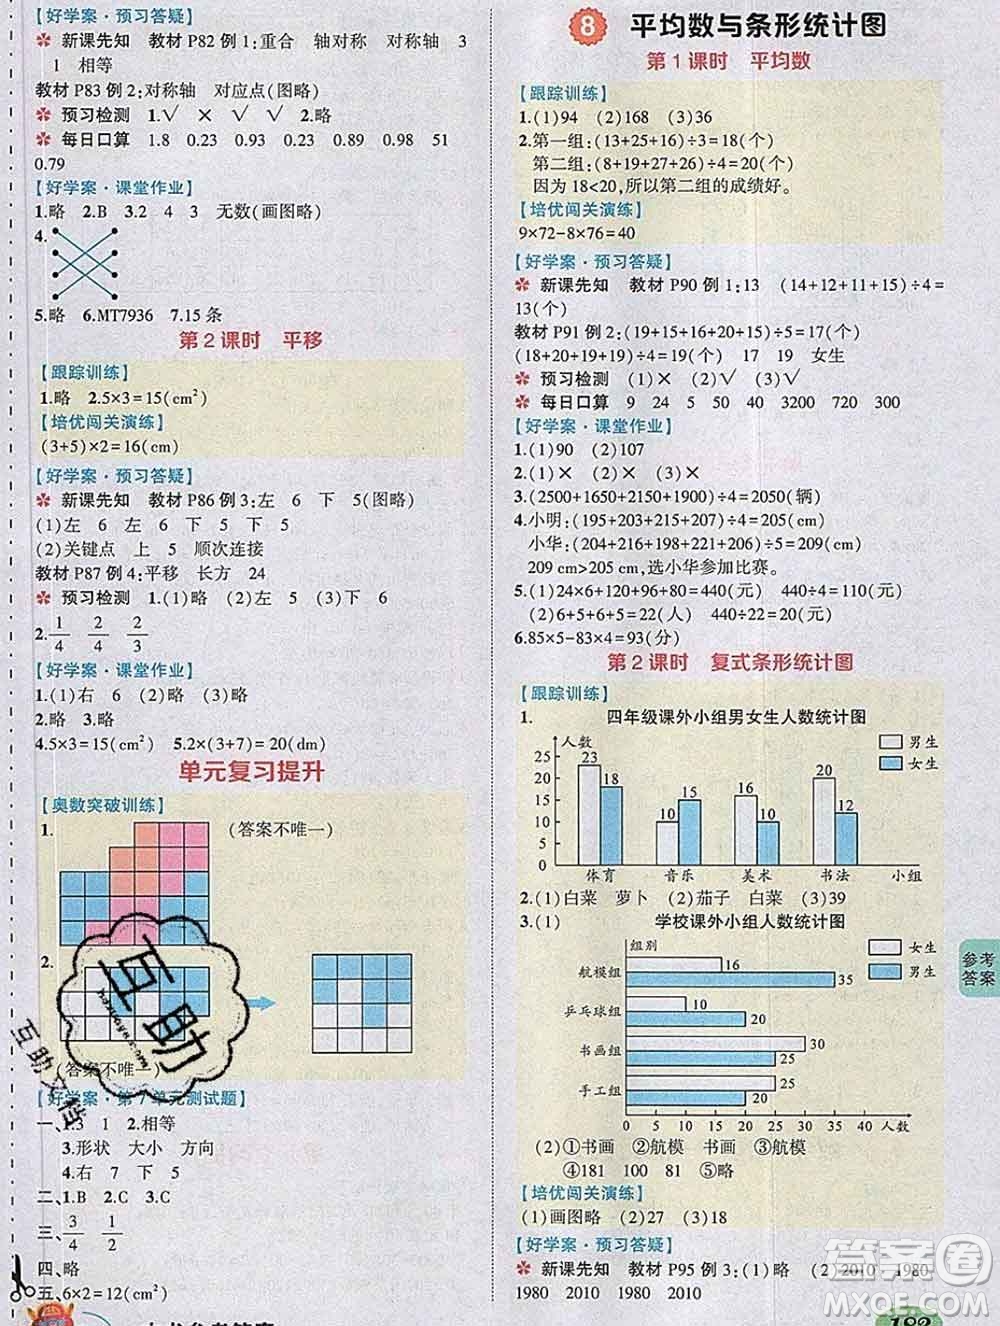 【好学案·预习答疑】
新课先知 教材 P82 例 1:重合 轴对称 对称轴 3
1 相等
教材 P83 例 2:对称轴 对应点(图略)
预习检测 1.√ × √ √ 2.略
每日口算 1.8 0.23 0.93 0.23 0.89 0.98 51
0.79
【好学案·课堂作业】
1.略 2.B 3.2 4 3 无数(画图略)
4.
5.略 6.MT7936 7.15 条
第 2 课时 平移
【跟踪训练】
1.略 2.5×3=15(cm²)
【培优闯关演练】
(3+5)×2=16(cm)
【好学案·预习答疑】
新课先知 教材 P86 例 3:左 6 下 5(图略)
(1)左 6 左 6 下 5 下 5
(2)关键点 上 5 顺次连接
教材 P87 例 4:平移 长方 24
预习检测 1.(1)略 (2)左 7 (3)下 6
2. 1/4 2/4 2/3
【好学案·课堂作业】
1.(1)右 6 (2)略 (3)略
2.略 3.略
4.5×3=15(cm²) 5.2×(3+7)=20(dm)
单元复习提升
【奥数突破训练】
1. (答案不唯一)
2.
(答案不唯一)
【好学案·第 7 单元测试题】
一、1.3 1 2.相等
3.形状 大小 方向
4.右 7 下 5
二、1.B 2.C 3.C
三、3/4 1/2
四、略
五、6×2=12(cm²)
8 平均数与条形统计图
第 1 课时 平均数
【跟踪训练】
1.(1)94 (2)168 (3)36
2.第一组:(13+25+16)÷3=18(个)
第二组:(8+19+27+26)÷4=20(个)
因为 18<20,所以第二组的成绩好。
【培优闯关演练】
9×72-8×76=40
【好学案·预习答疑】
新课先知 教材 P90 例 1:13 (14+12+11+15)÷4=
13(个)
教材 P91 例 2:(19+15+16+20+15)÷5=17(个)
(18+20+19+19)÷4=19(个) 17 19 女生
预习检测 (1)× (2)√ (3)√
每日口算 9 24 5 50 40 3200 720 300
【好学案·课堂作业】
1.(1)90 (2)107
2.(1)× (2)× (3)×
3.(2500+1650+2150+1900)÷4=2050(辆)
4.小明:(195+203+215+207)÷4=205(cm)
小华:(204+216+198+216+211)÷5=209(cm)
209 cm>205 cm,选小华参加比赛。
5.(1)24×6+120+96+80=440(元) 440÷4=110(元)
(2)6+5+6+5=22(人) 440÷22=20(元)
6.85×5-83×4=93(分)
第 2 课时 复式条形统计图
【跟踪训练】
1. 四年级课外小组男女生人数统计图
人数 男生 女生
25
20
15
10
5
0
23 18 10 15 16 10 20 12
体育 音乐 美术 书法 小组
2.(1)白菜 萝卜 (2)茄子 白菜 (3)39
3.(1) 学校课外小组人数统计图
组别 女生 男生
航模组 16 35
乒乓球组 10 20
书画组 30 25
手工组 25 20
0 5 10 15 20 25 30 35 40 人数
(2)①书画 ②航模 书画 ③航模
④181 100 81 ⑤略
【培优闯关演练】
(1)画图略 (2)27 (3)18
【好学案·预习答疑】
新课先知 教材 P95 例 3:(1)略 (2)2010 1980
1980 2010 1980 2010
参考
答案
182
互助
互助文档
答案圈